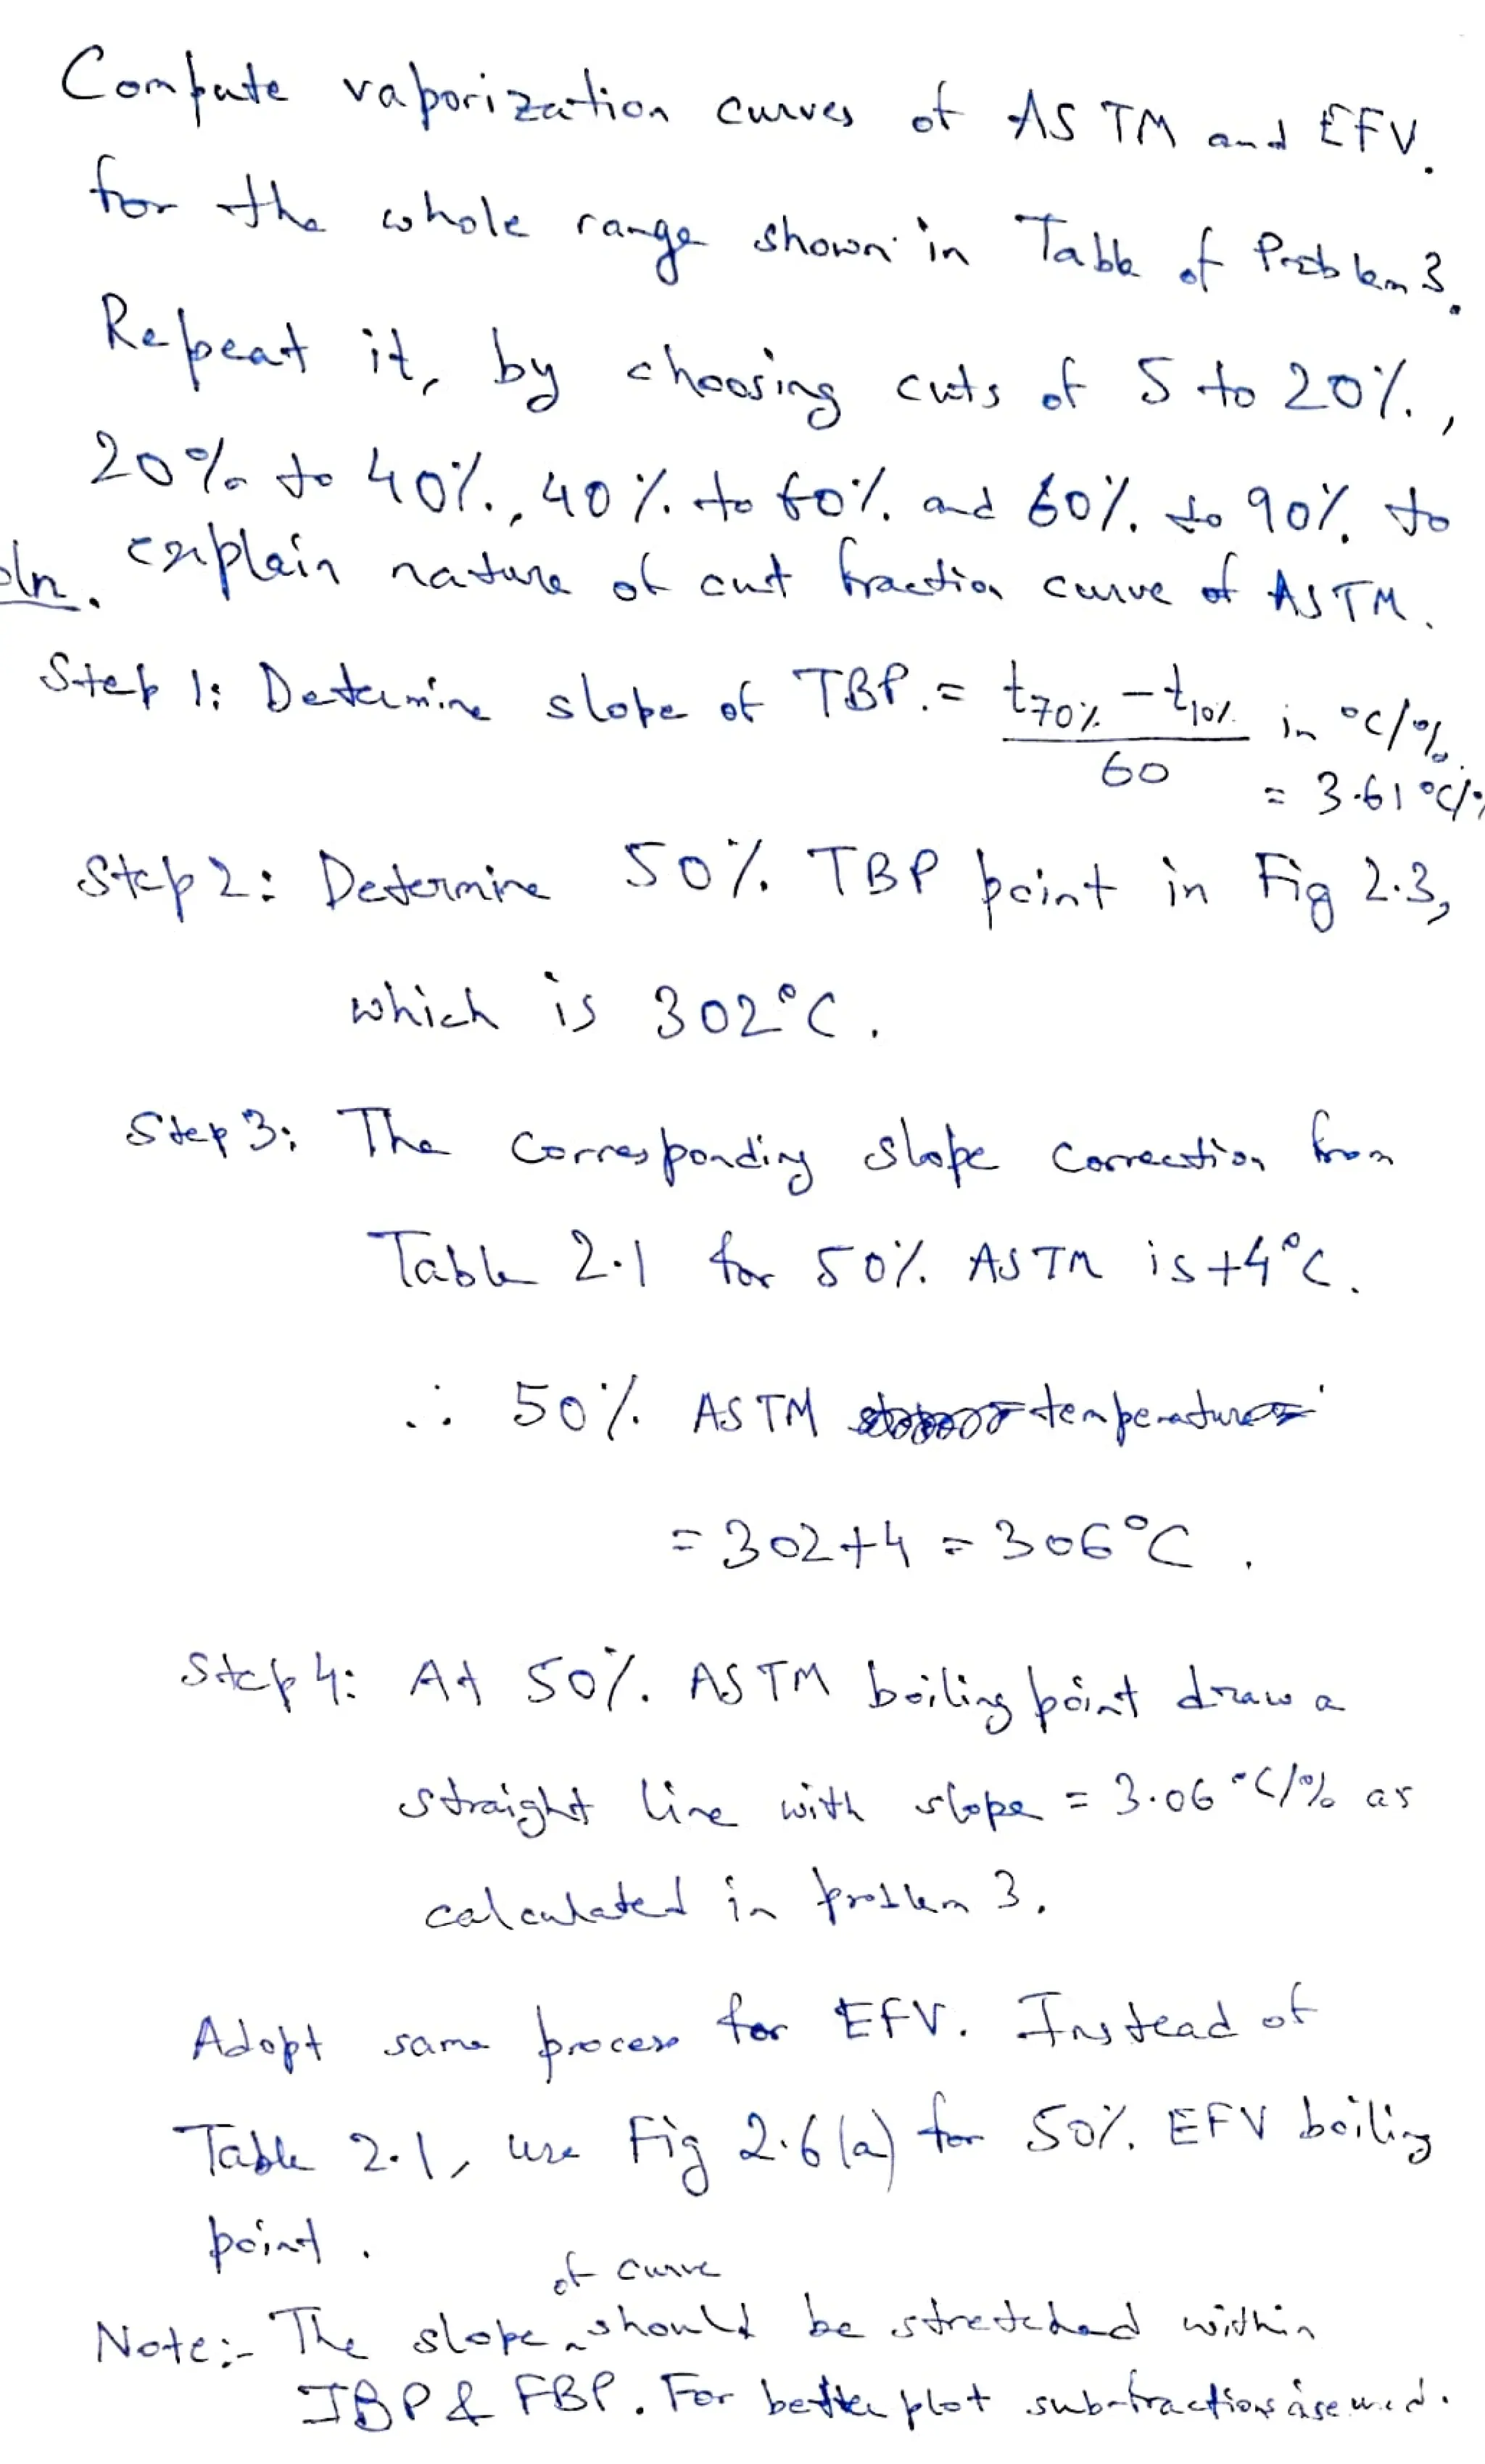 Compute vaporization curves of ASTM and EFV.
for the whole range shown in Table of Problem 3.
Repeat it, by choosing cuts of 5 to 20%,
20% to 40%, 40% to 60% and 60% to 90% to
explain nature of cut fraction curve of ASTM.
oln.
Step 1: Determine slope of TBP. = t70% - t10% / 60 in °C/%.
= 3.61 °C/%
Step 2: Determine 50% TBP point in Fig 2.3,
which is 302°C.
Step 3: The corresponding slope correction from
Table 2.1 for 50% ASTM is +4°C.
∴ 50% ASTM temperature
= 302+4 = 306°C.
Step 4: At 50% ASTM boiling point draw a
straight line with slope = 3.06 °C/% as
calculated in problem 3.
Adopt same process for EFV. Instead of
Table 2.1, use Fig 2.6(a) for 50% EFV boiling
point.
of curve
Note:- The slope ^ should be stretched within
IBP & FBP. For better plot sub-fractions are used.